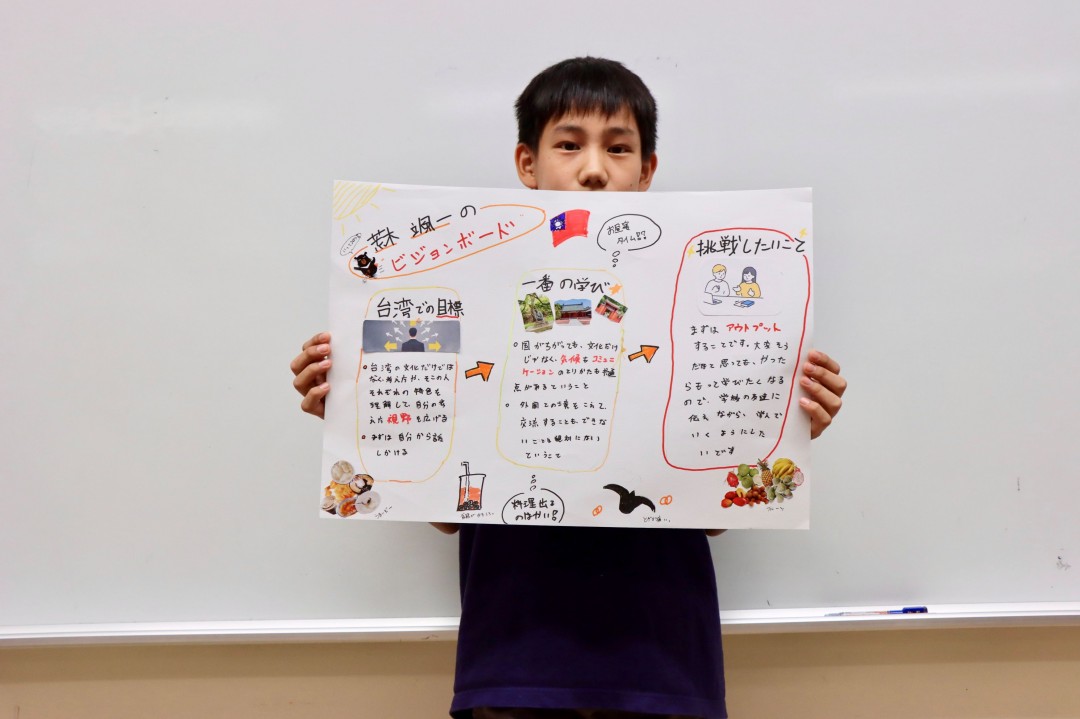 荒木 颯一の
ビジョンボード
お昼寝
タイム??
台湾での目標
台湾の文化だけでは
なく、考え方や、そこの人
それぞれの特色を
理解して、自分の考
え方 視野を広げる
まずは自分から話
しかける
一番の学び
国がちがっても、文化だけ
じゃなく、気候もコミュニ
ケーションのとりかたも
点があるということ
外国との壁をこえて、
交流することも、できな
いことも絶対にない
ていうこと
挑戦したいこと
まずは アウトプット
することです。大変そう
だなて思っても、やった
らもって学びたくなる
ので、学校の友達に
伝えながら、学んで
いくようにした
いです
料理出る
のはやい!!
フルーツ